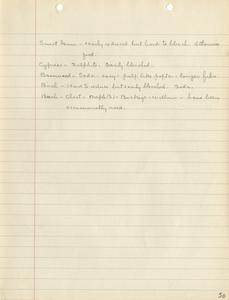 Sweet Gum - easily reduced but hard to bleach. Otherwise
good.
Cypress - Sulphite. Easily bleached.
Basswood - Soda - easy - pulp like poplar - longer fibre.
Birch - Hard to reduce but easily bleached. Soda.
Beech - Chest - Maple(s) - Buckeye - Willow - have been
occasionally used.
50